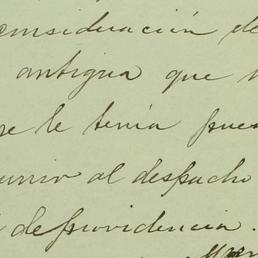 consideración de
antigua que
se le tenía pues
al despacho
de providencia.